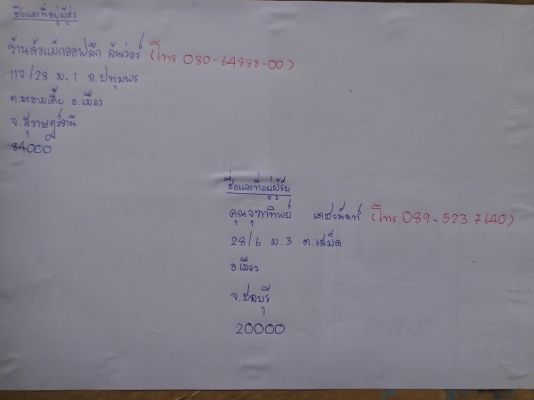 ชื่อและที่อยู่ผู้ส่ง
ร้านล้อแม็กออฟลึก สันว่อร์ (โทร 080-64888-00)
112/28 ม.1 ถ.ปทุมพร
ต.มะขามเตี้ย อ.เมือง
จ.สุราษฎร์ธานี
84000
ชื่อและที่อยู่ผู้รับ
คุณจุฑาทิพย์ (โทร 089-523 7640)
28/6 ม.3 ต.เสม็ด
อ.เมือง
จ.ชลบุรี
20000